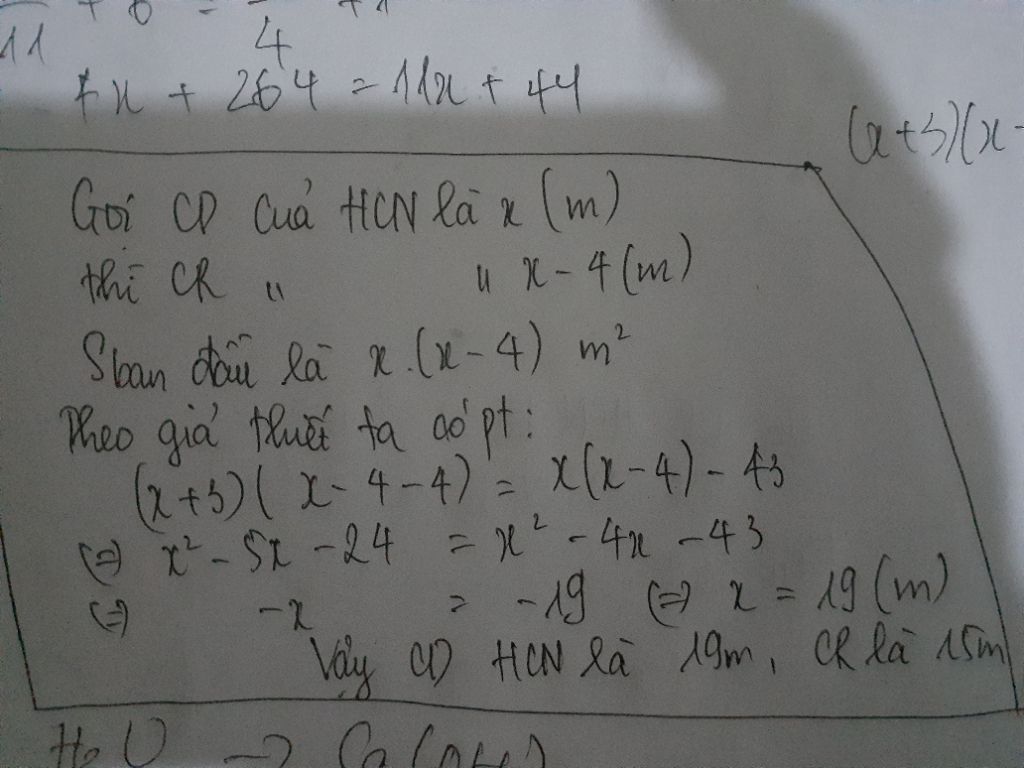 11 + 6 = 4 + 1
7x + 264 = 11x + 44
(x+3)(x-
Gọi CD của HCN là x (m)
thì CR " " x - 4 (m)
S ban đầu là x.(x-4) m²
Theo giả thuết ta có pt:
(x+3)(x-4-4) = x(x-4) - 43
(=) x² - 5x - 24 = x² - 4x - 43
(=) -x = -19 (=) x = 19 (m)
Vậy CD HCN là 19m, CR là 15m